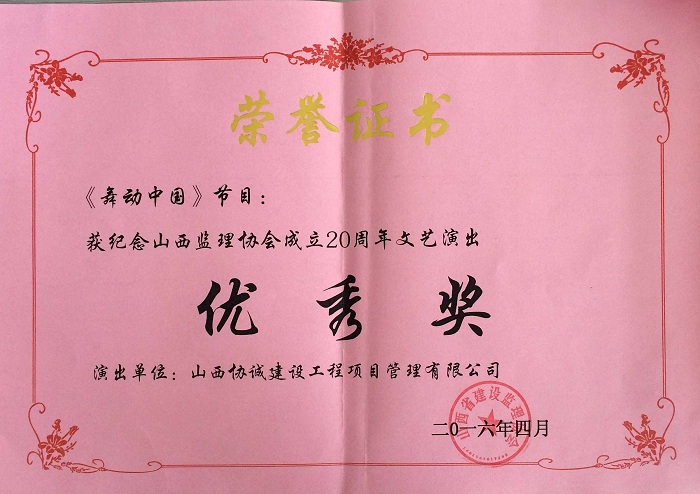 荣誉证书
《舞动中国》节目：
获纪念山西监理协会成立20周年文艺演出
优秀奖
演出单位：山西协诚建设工程项目管理有限公司
山西省建设监理协会
二〇一六年四月